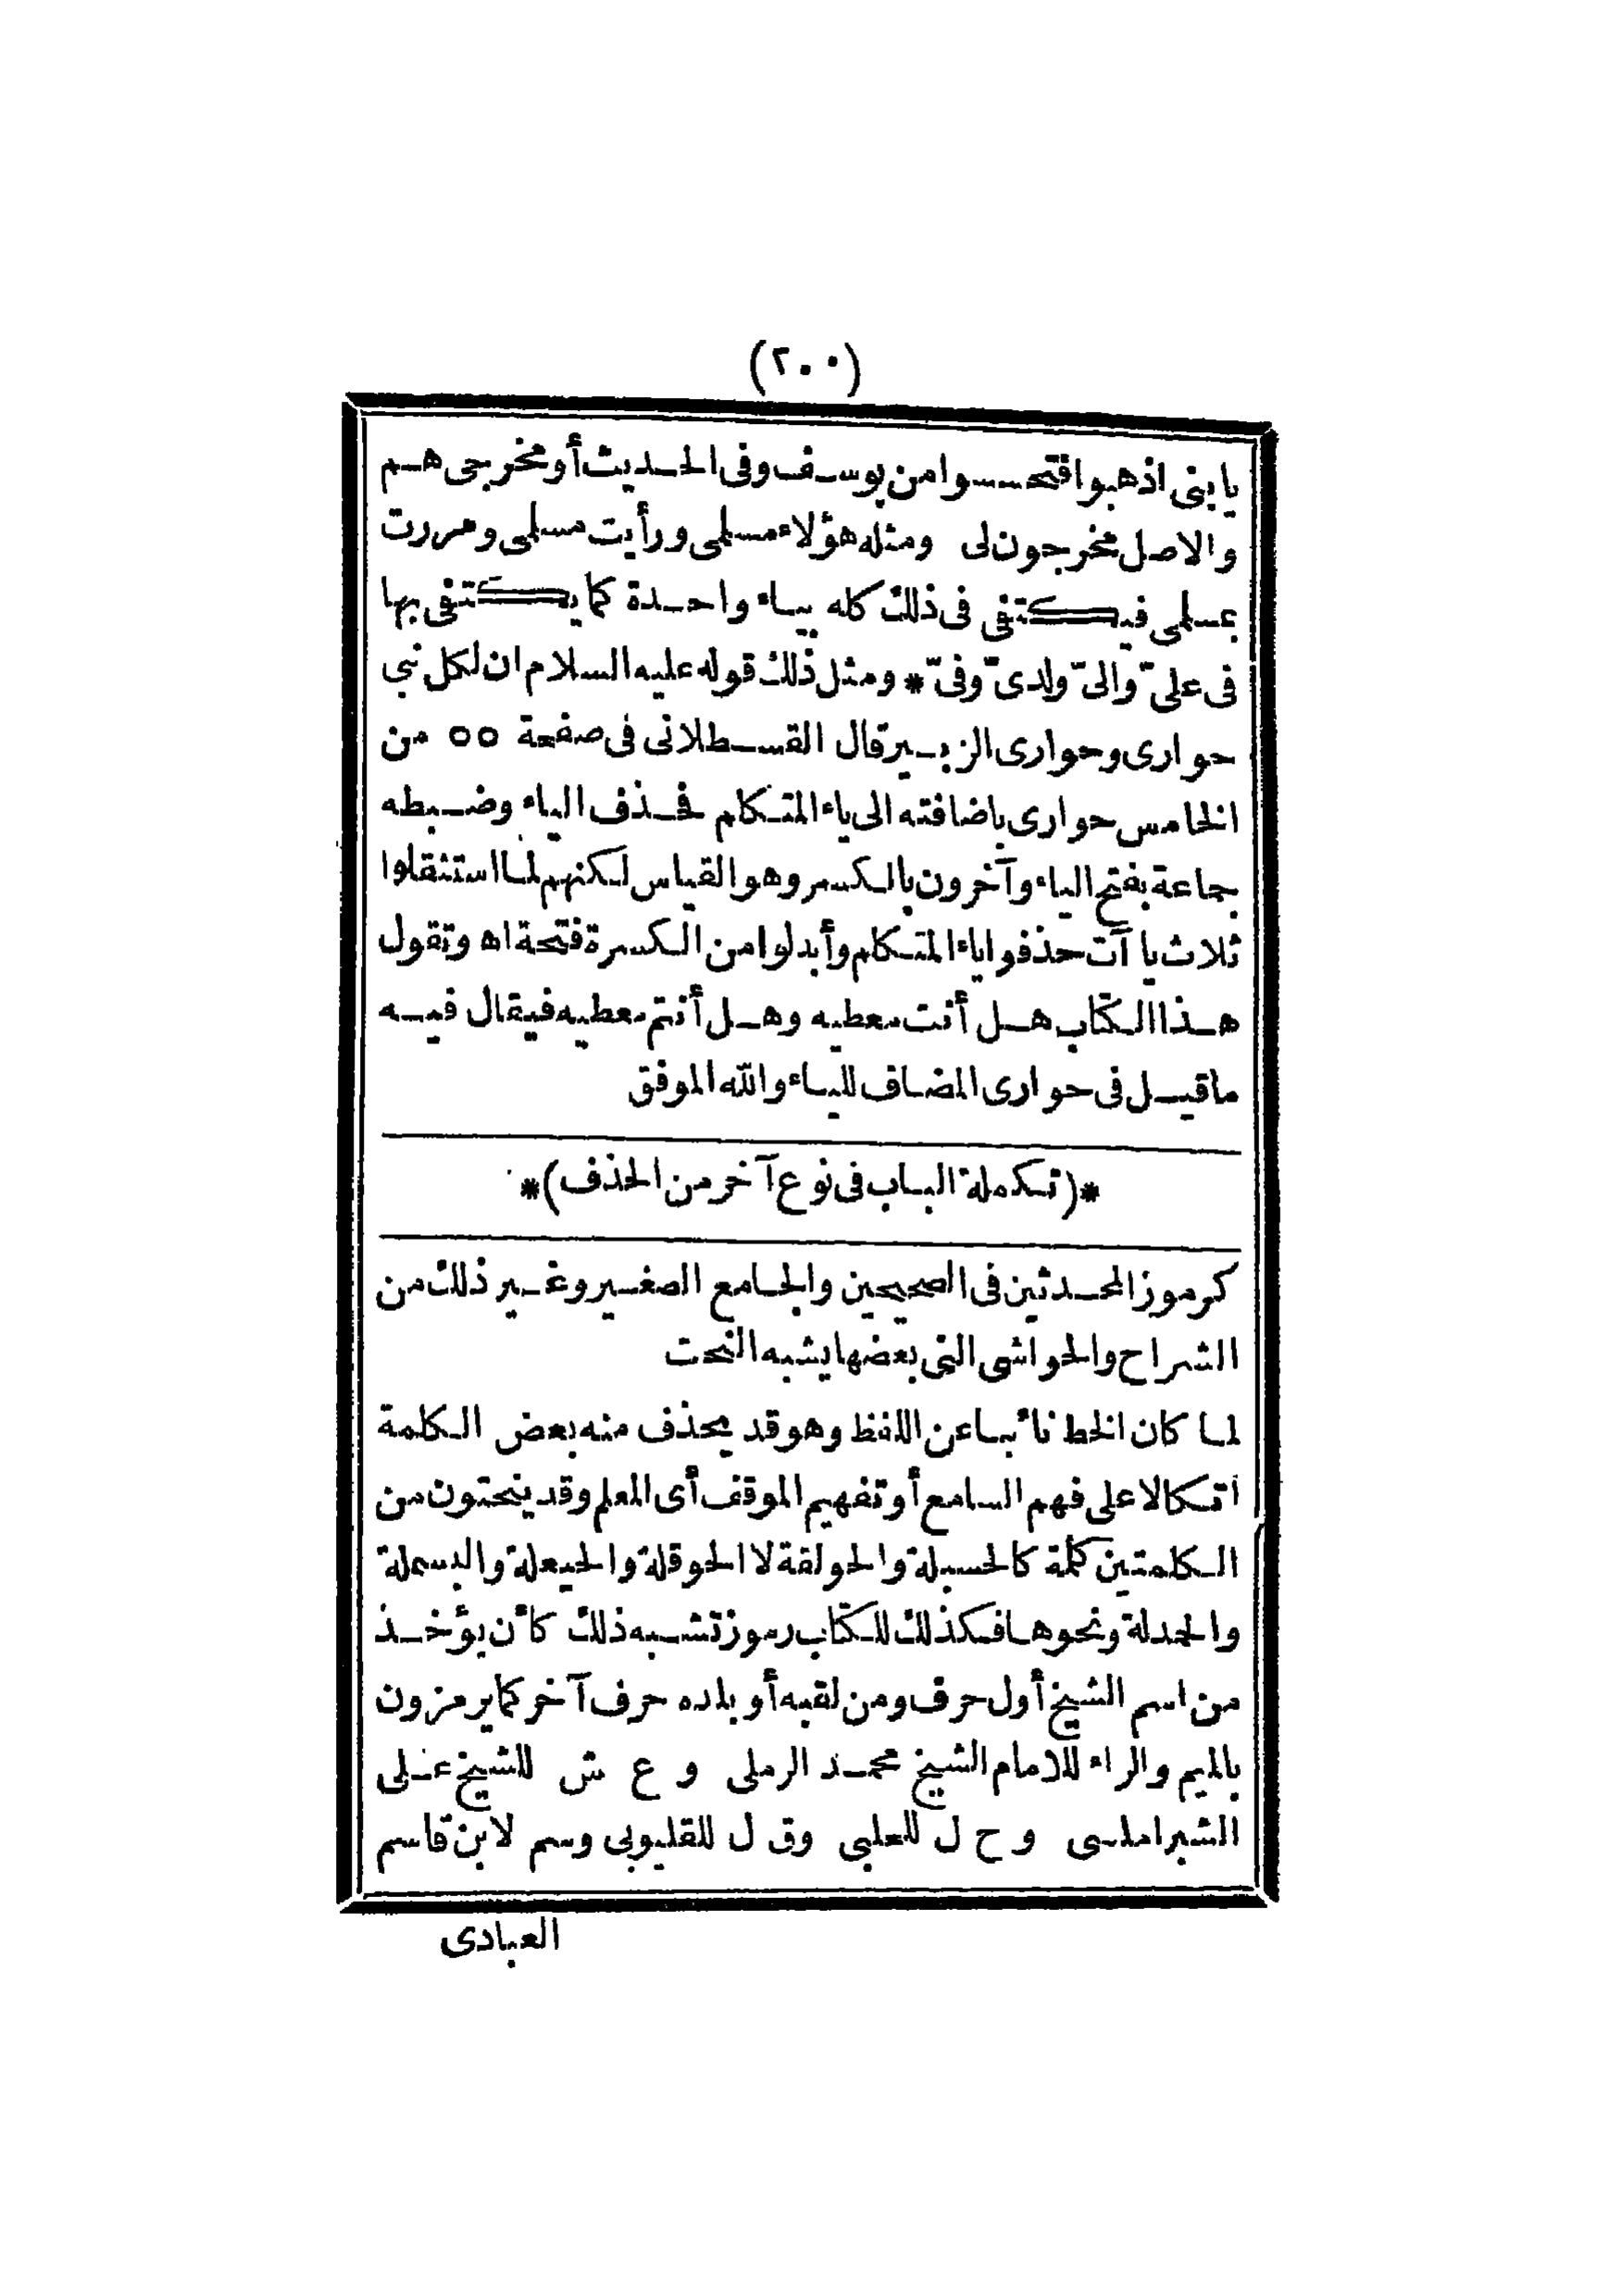 (٢٠٠)
يا بنى اذهبوا فتحسسوا من يوسف وفى الحديث أو مخرجى هم
والاصل مخرجون لى ومثله هؤلاء مسلمى ورأيت مسلمى ومررت
بمسلمى فيكتفى فى ذلك كله بياء واحدة كما يكتفى بها
فى علىّ والىّ ولدىّ وفىّ * ومثل ذلك قوله عليه السلام ان لكل نبى
حوارى وحوارى الزبير قال القسطلانى فى صفحة ٥٥ من
الخامس حوارى باضافته الى ياء المتكلم فحذف الياء وضبطه
جماعة بفتح الياء وآخرون بالكسر وهو القياس لكنهم لما استثقلوا
ثلاث يا آت حذفوا ياء المتكلم وأبدلوا من الكسرة فتحة اه وتقول
هذا الكتاب هل أنت معطيه وهل أنتم معطيه فيقال فيه
ماقيل فى حوارى المضاف للياء والله الموفق
*(تكملة الباب فى نوع آخر من الحذف)*
كرموز المحدثين فى الصحيحين والجامع الصغير وغير ذلك من
الشراح والحواشى التى بعضها يشبه النحت
لما كان الخط نائبا عن اللفظ وهو قد يحذف منه بعض الكلمة
اتكالا على فهم السامع أو تفهيم الموقف أى المعلم وقد ينحتون من
الكلمتين كلمة كالحسبلة والحولقة لا الحوقلة والحيعلة والبسملة
والحمدلة ونحوها فكذلك للكتاب رموز تشبه ذلك كأن يؤخذ
من اسم الشيخ أول حرف ومن لقبه أو بلده حرف آخر كما يرمزون
بالميم والراء للامام الشيخ محمد الرملى و ع ش للشيخ على
الشبراملسى و ح ل للحلبى وق ل للقليوبى وسم لابن قاسم
العبادى